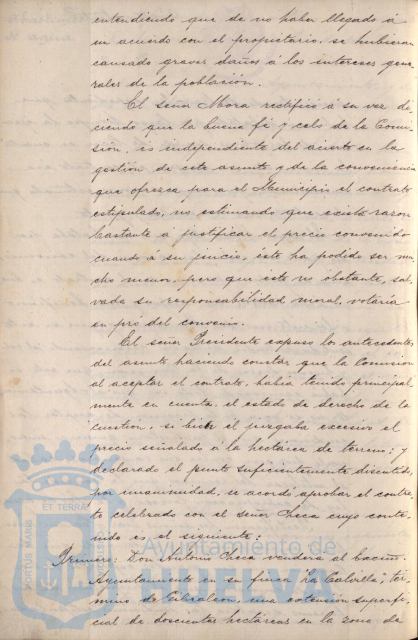 entendiendo que de no haber llegado á
un acuerdo con el propietario, se hubieran
causado graves daños á los intereses gene
rales de la población.
El señor Mora rectificó á su vez di-
ciendo que la buena fé y celo de la Comi
sión, es independiente del acierto en la
gestión de este asunto y de la conveniencia
que ofrezca para el Municipio el contrato
estipulado, no estimando que exista razon
bastante á justificar el precio convenido
cuando á su juicio, éste ha podido ser mu
cho menor, pero que esto no obstante, sal
vada su responsabilidad moral, votaría
en pró del convenio.
El señor Presidente expuso los antecedentes
del asunto haciendo constar que la Comision
al aceptar el contrato, había tenido principal
mente en cuenta, el estado de derecho de la
cuestion, si bien él juzgaba excesivo el
precio señalado á la hectárea de terreno; y
declarado el punto suficientemente discutido,
por unanimidad, se acordó aprobar el contra
to celebrado con el señor Checa cuyo conte-
nido es el siguiente:
Primero: Don Antonio Checa venderá al Excmo.
Ayuntamiento en su finca "La Calvilla", tér
mino de Gibraleon, una extensión superfi
cial de doscientas hectáreas en la zona de
PORTUS MARIS ET TERRAE
Ayuntamiento de
HUELVA